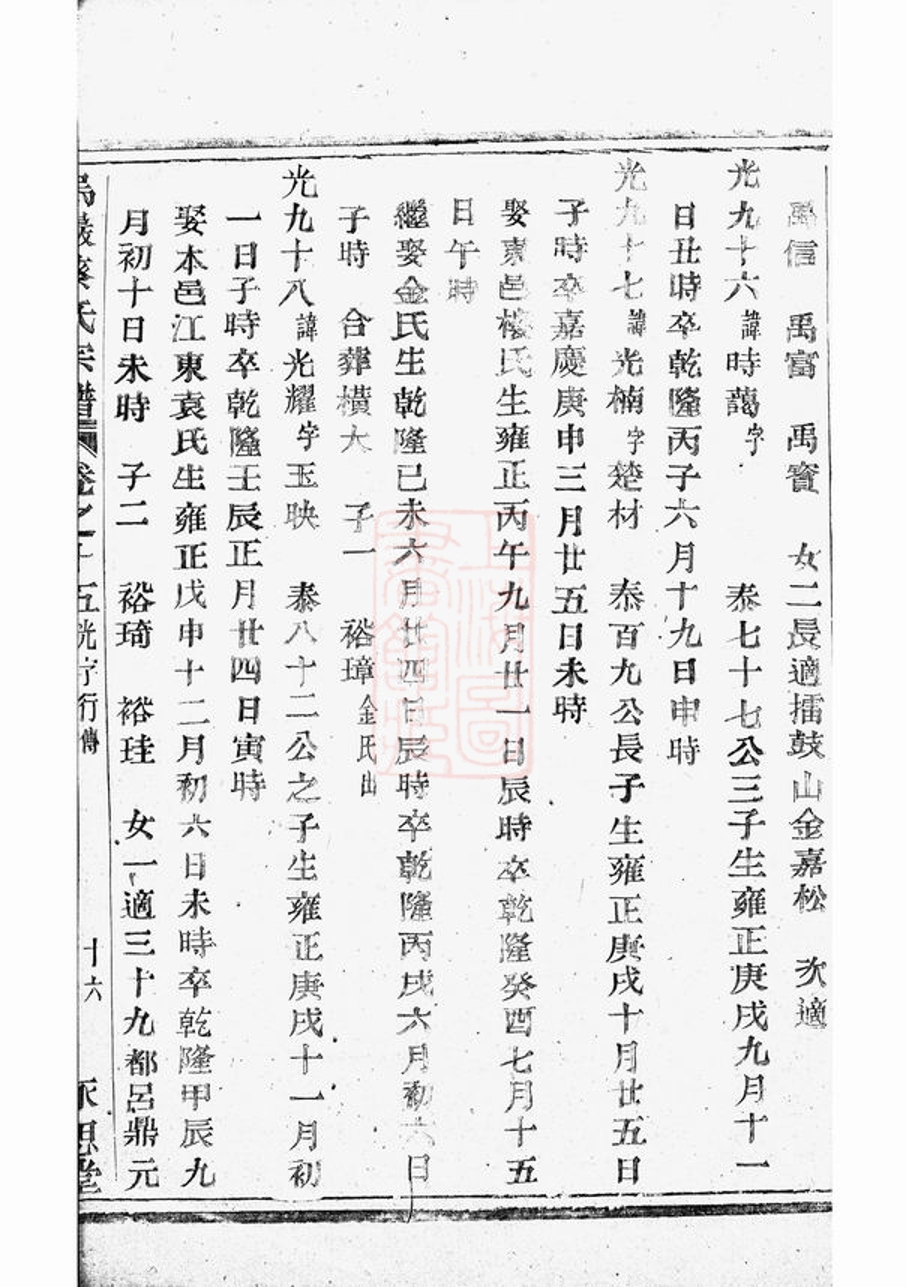 禹信　禹富　禹寳　女二長適擂鼓山金嘉松　次適
光九十六諱時藹字　　泰七十七公三子生雍正庚戌九月十一
日丑時卒乾隆丙子六月十九日申時
光九十七諱光楠字楚材　泰百九公長子生雍正庚戌十月廿五日
子時卒嘉慶庚申三月廿五日未時
娶東邑樓氏生雍正丙午九月廿一日辰時卒乾隆癸酉七月十五
日午時
繼娶金氏生乾隆己未六月廿四日辰時卒乾隆丙戌六月初六日
子時　合葬橫大　子一　裕璋金氏出
光九十八諱光耀字玉映　泰八十二公之子生雍正庚戌十一月初
一日子時卒乾隆壬辰正月廿四日寅時
娶本邑江東袁氏生雍正戊申十二月初六日未時卒乾隆甲辰九
月初十日未時　子二　裕琦　裕珪　女一適三十九都呂鼎元
氏宗譜　卷之十五光字行傳　十六　永思堂
上海圖書館藏